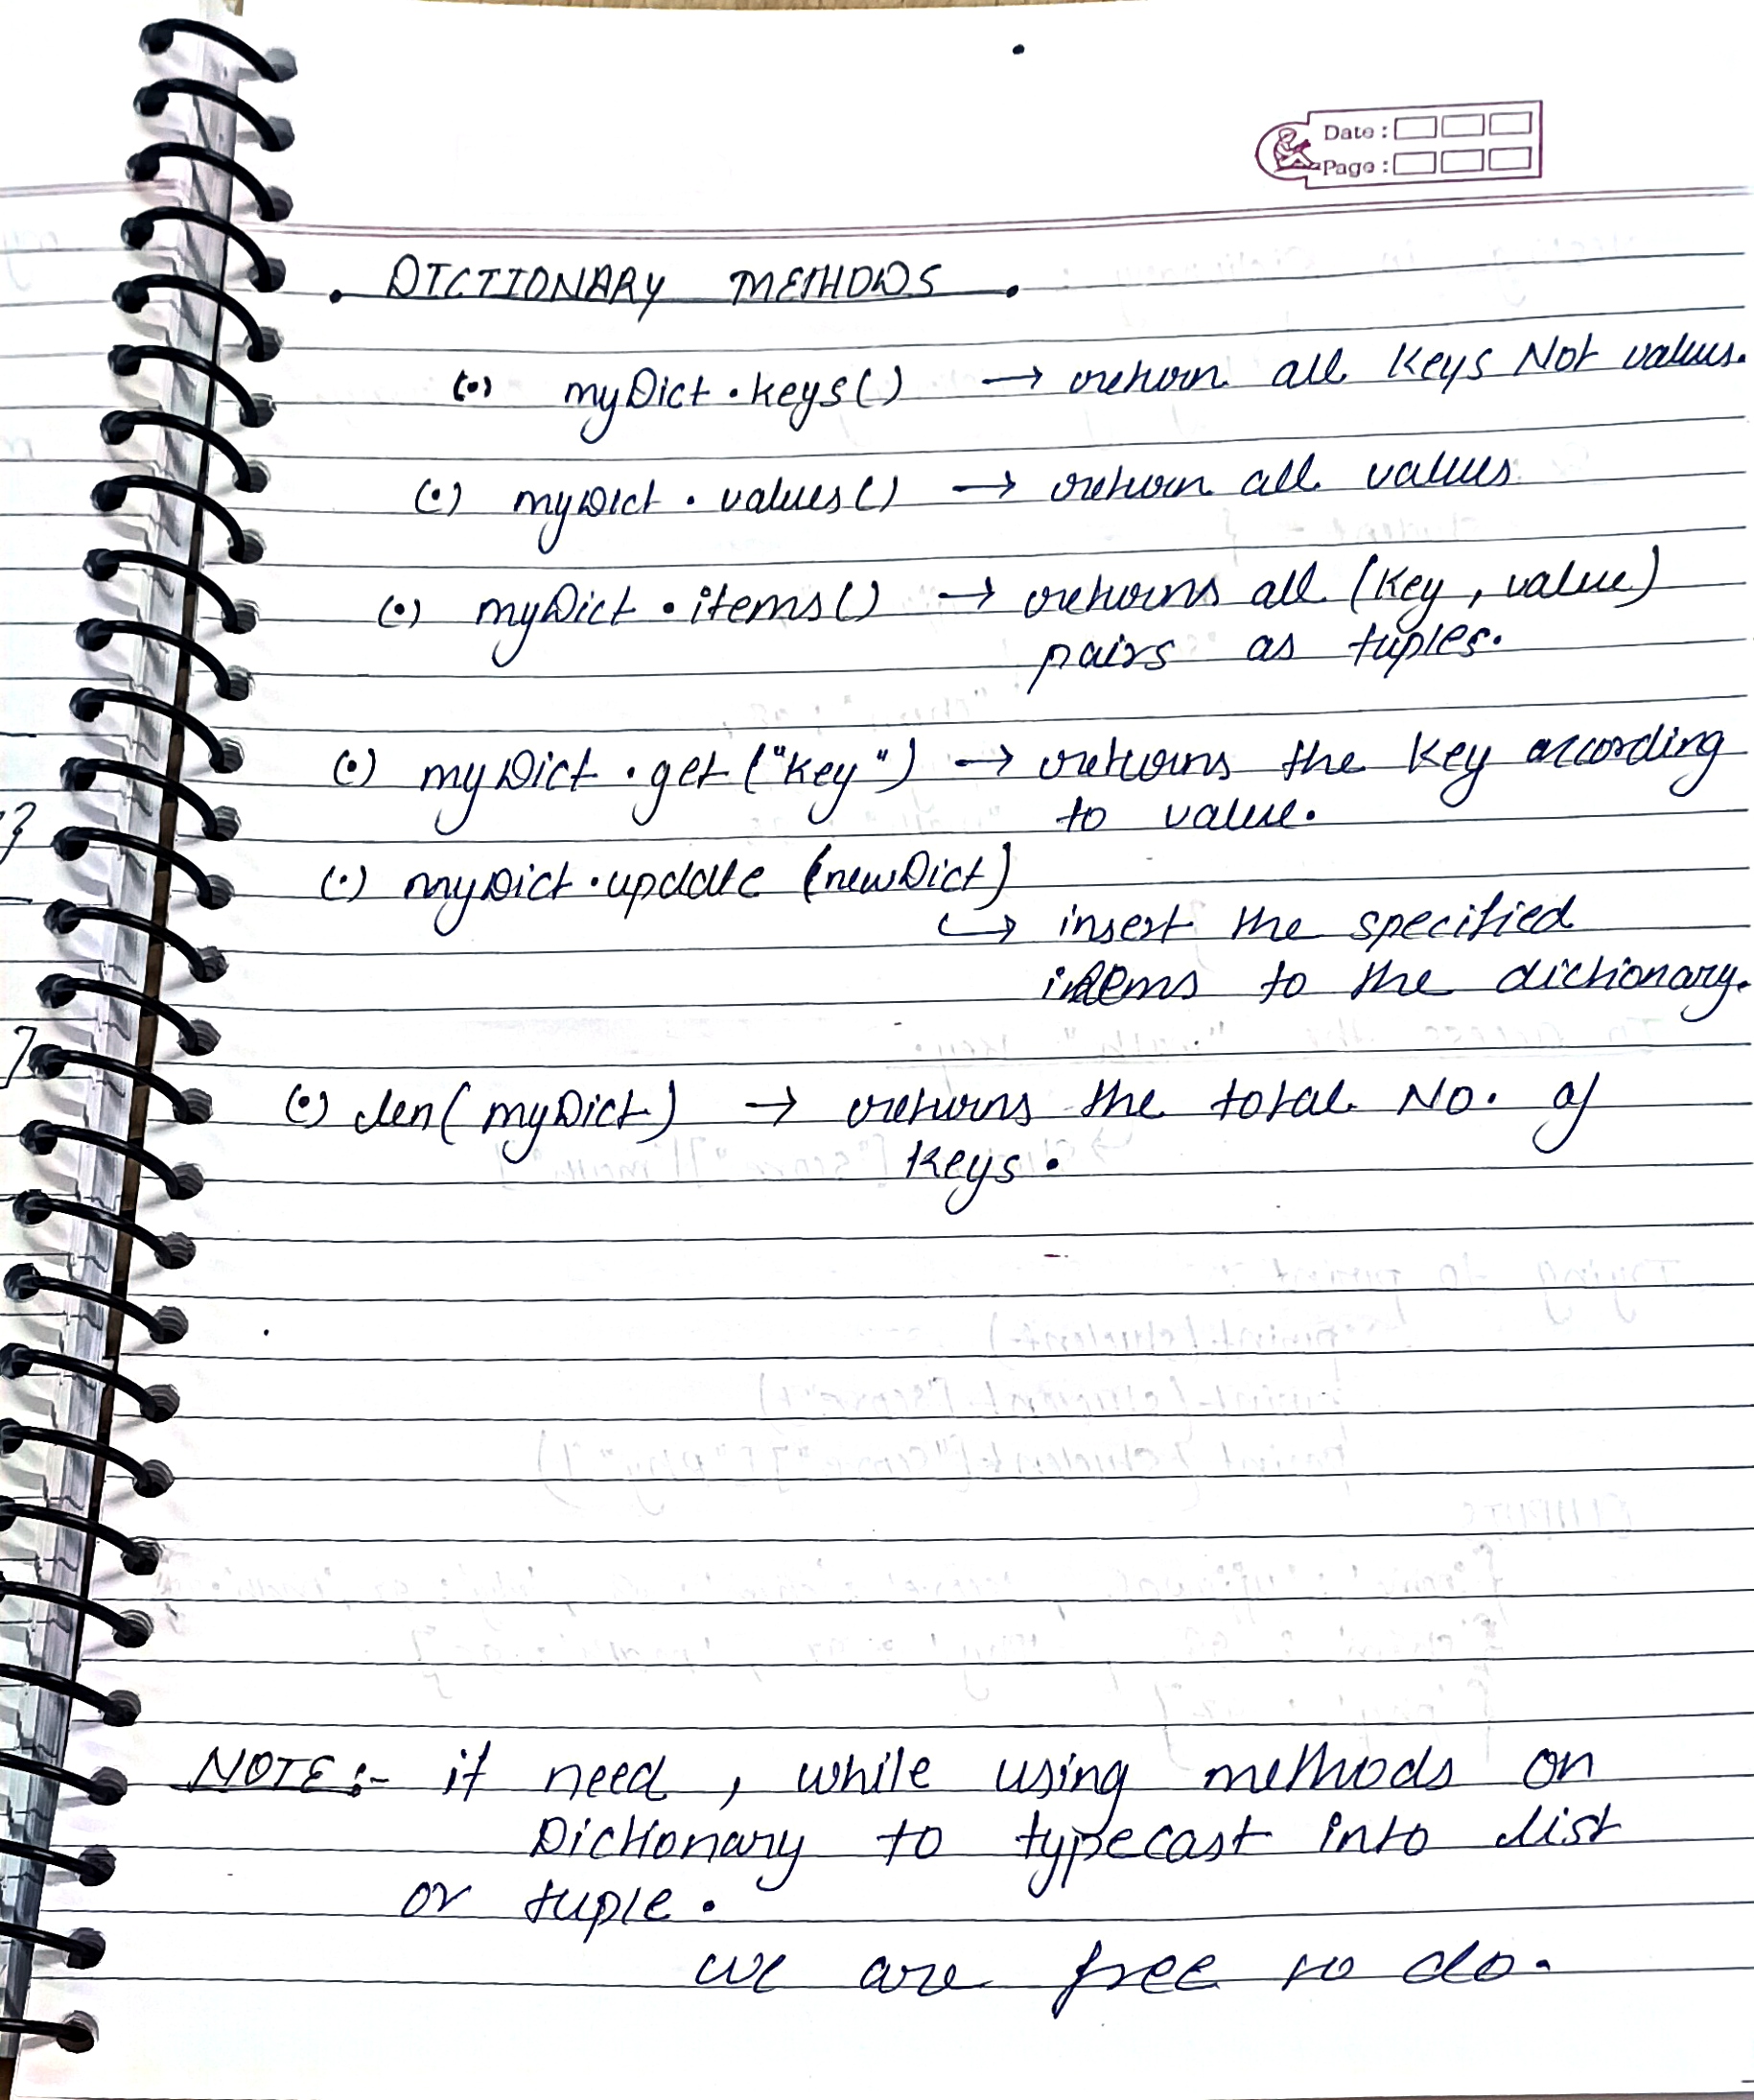 Date :
Page :
. DICTIONARY METHODS .
(•) myDict . keys() → return all keys Not values.
(•) myDict . values() → return all values
(•) myDict . items() → returns all (key , value)
pairs as tuples.
(•) myDict . get ("key") → returns the key according
to value.
(•) myDict . update (newDict)
↪ insert the specified
items to the dictionary.
(•) len( myDict ) → returns the total No. of
keys .
NOTE :- if need , while using methods on
Dictionary to typecast into list
or tuple .
we are free to do .